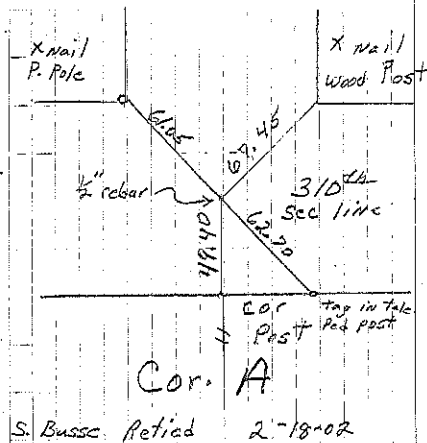 X Nail
P. Pole
X Nail
Wood Post
61.05
67.45
1/2" rebar
310th
Sec line
48.40
62.70
Cor
Post
tag in tele
Ped post
Cor. A
S. Busse Retied 2-18-02